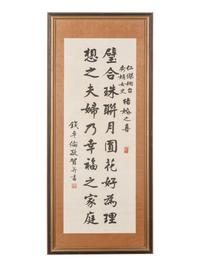 仁傑翰台
秀娟女史
结婚之喜
璧合珠聯月圓花好為理
想之夫婦乃幸福之家庭
錢卓倫敬賀并書